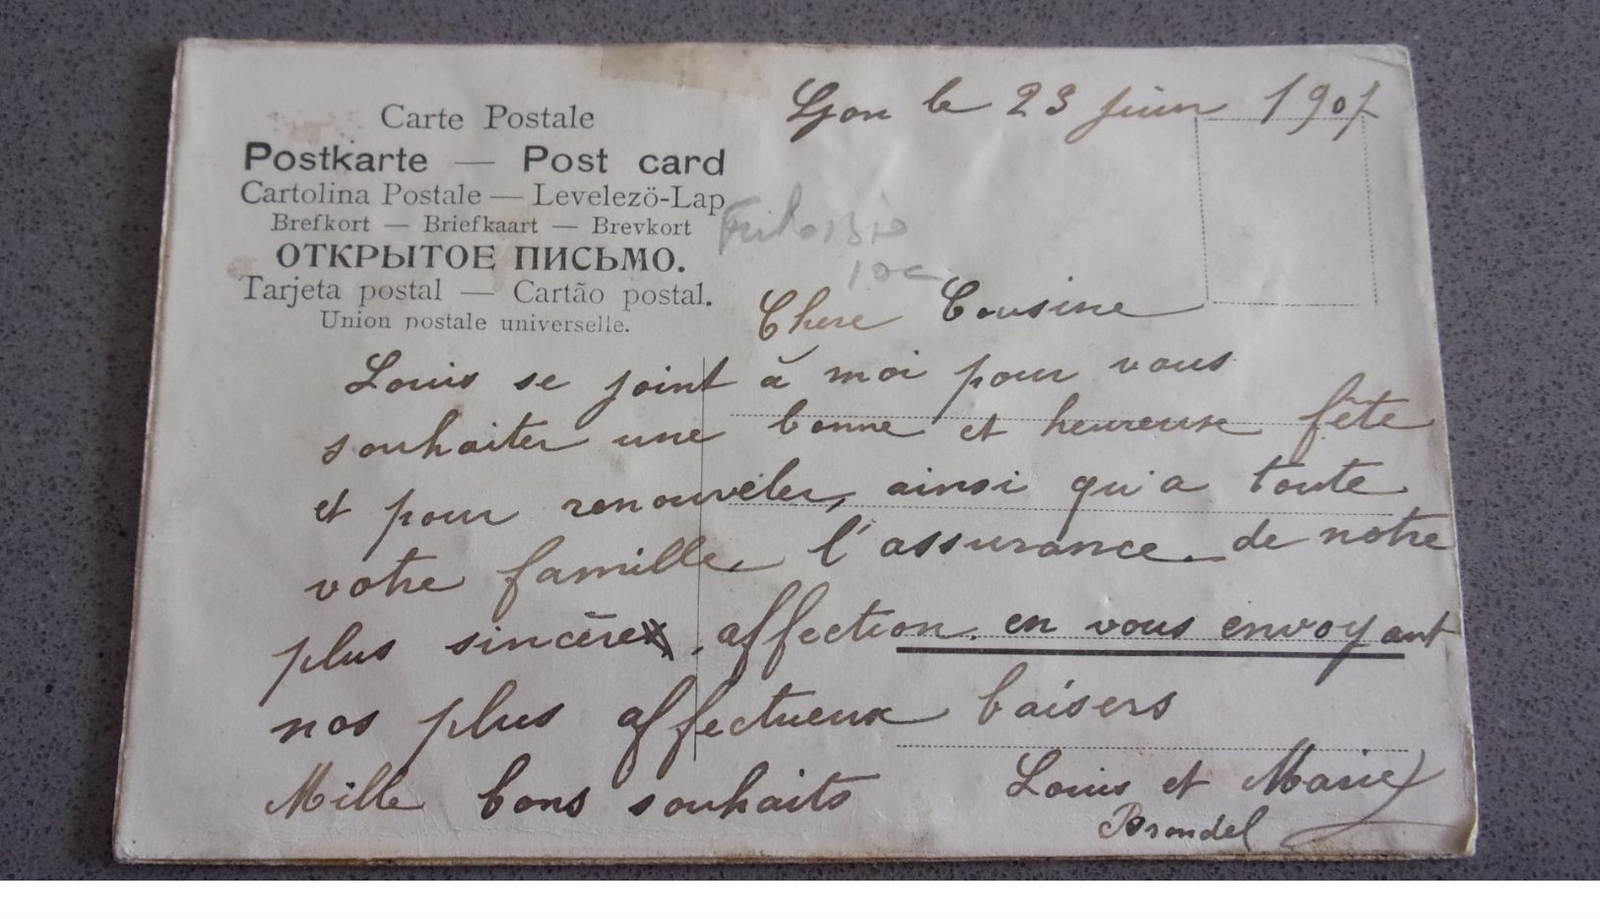 Lyon le 23 juin 1907
Carte Postale
Postkarte — Post card
Cartolina Postale — Levelezö-Lap
Brefkort — Briefkaart — Brevkort
ОТКРЫТОЕ ПИСЬМО.
Tarjeta postal — Cartão postal.
Union postale universelle.
10c
Chere Cousine
Louis se joint à moi pour vous
souhaiter une bonne et heureuse fête
et pour renouveler, ainsi qu'a toute
votre famille l'assurance de notre
plus sincère affection. en vous envoyant
nos plus affectueux baisers
Mille bons souhaits
Louis et Marie